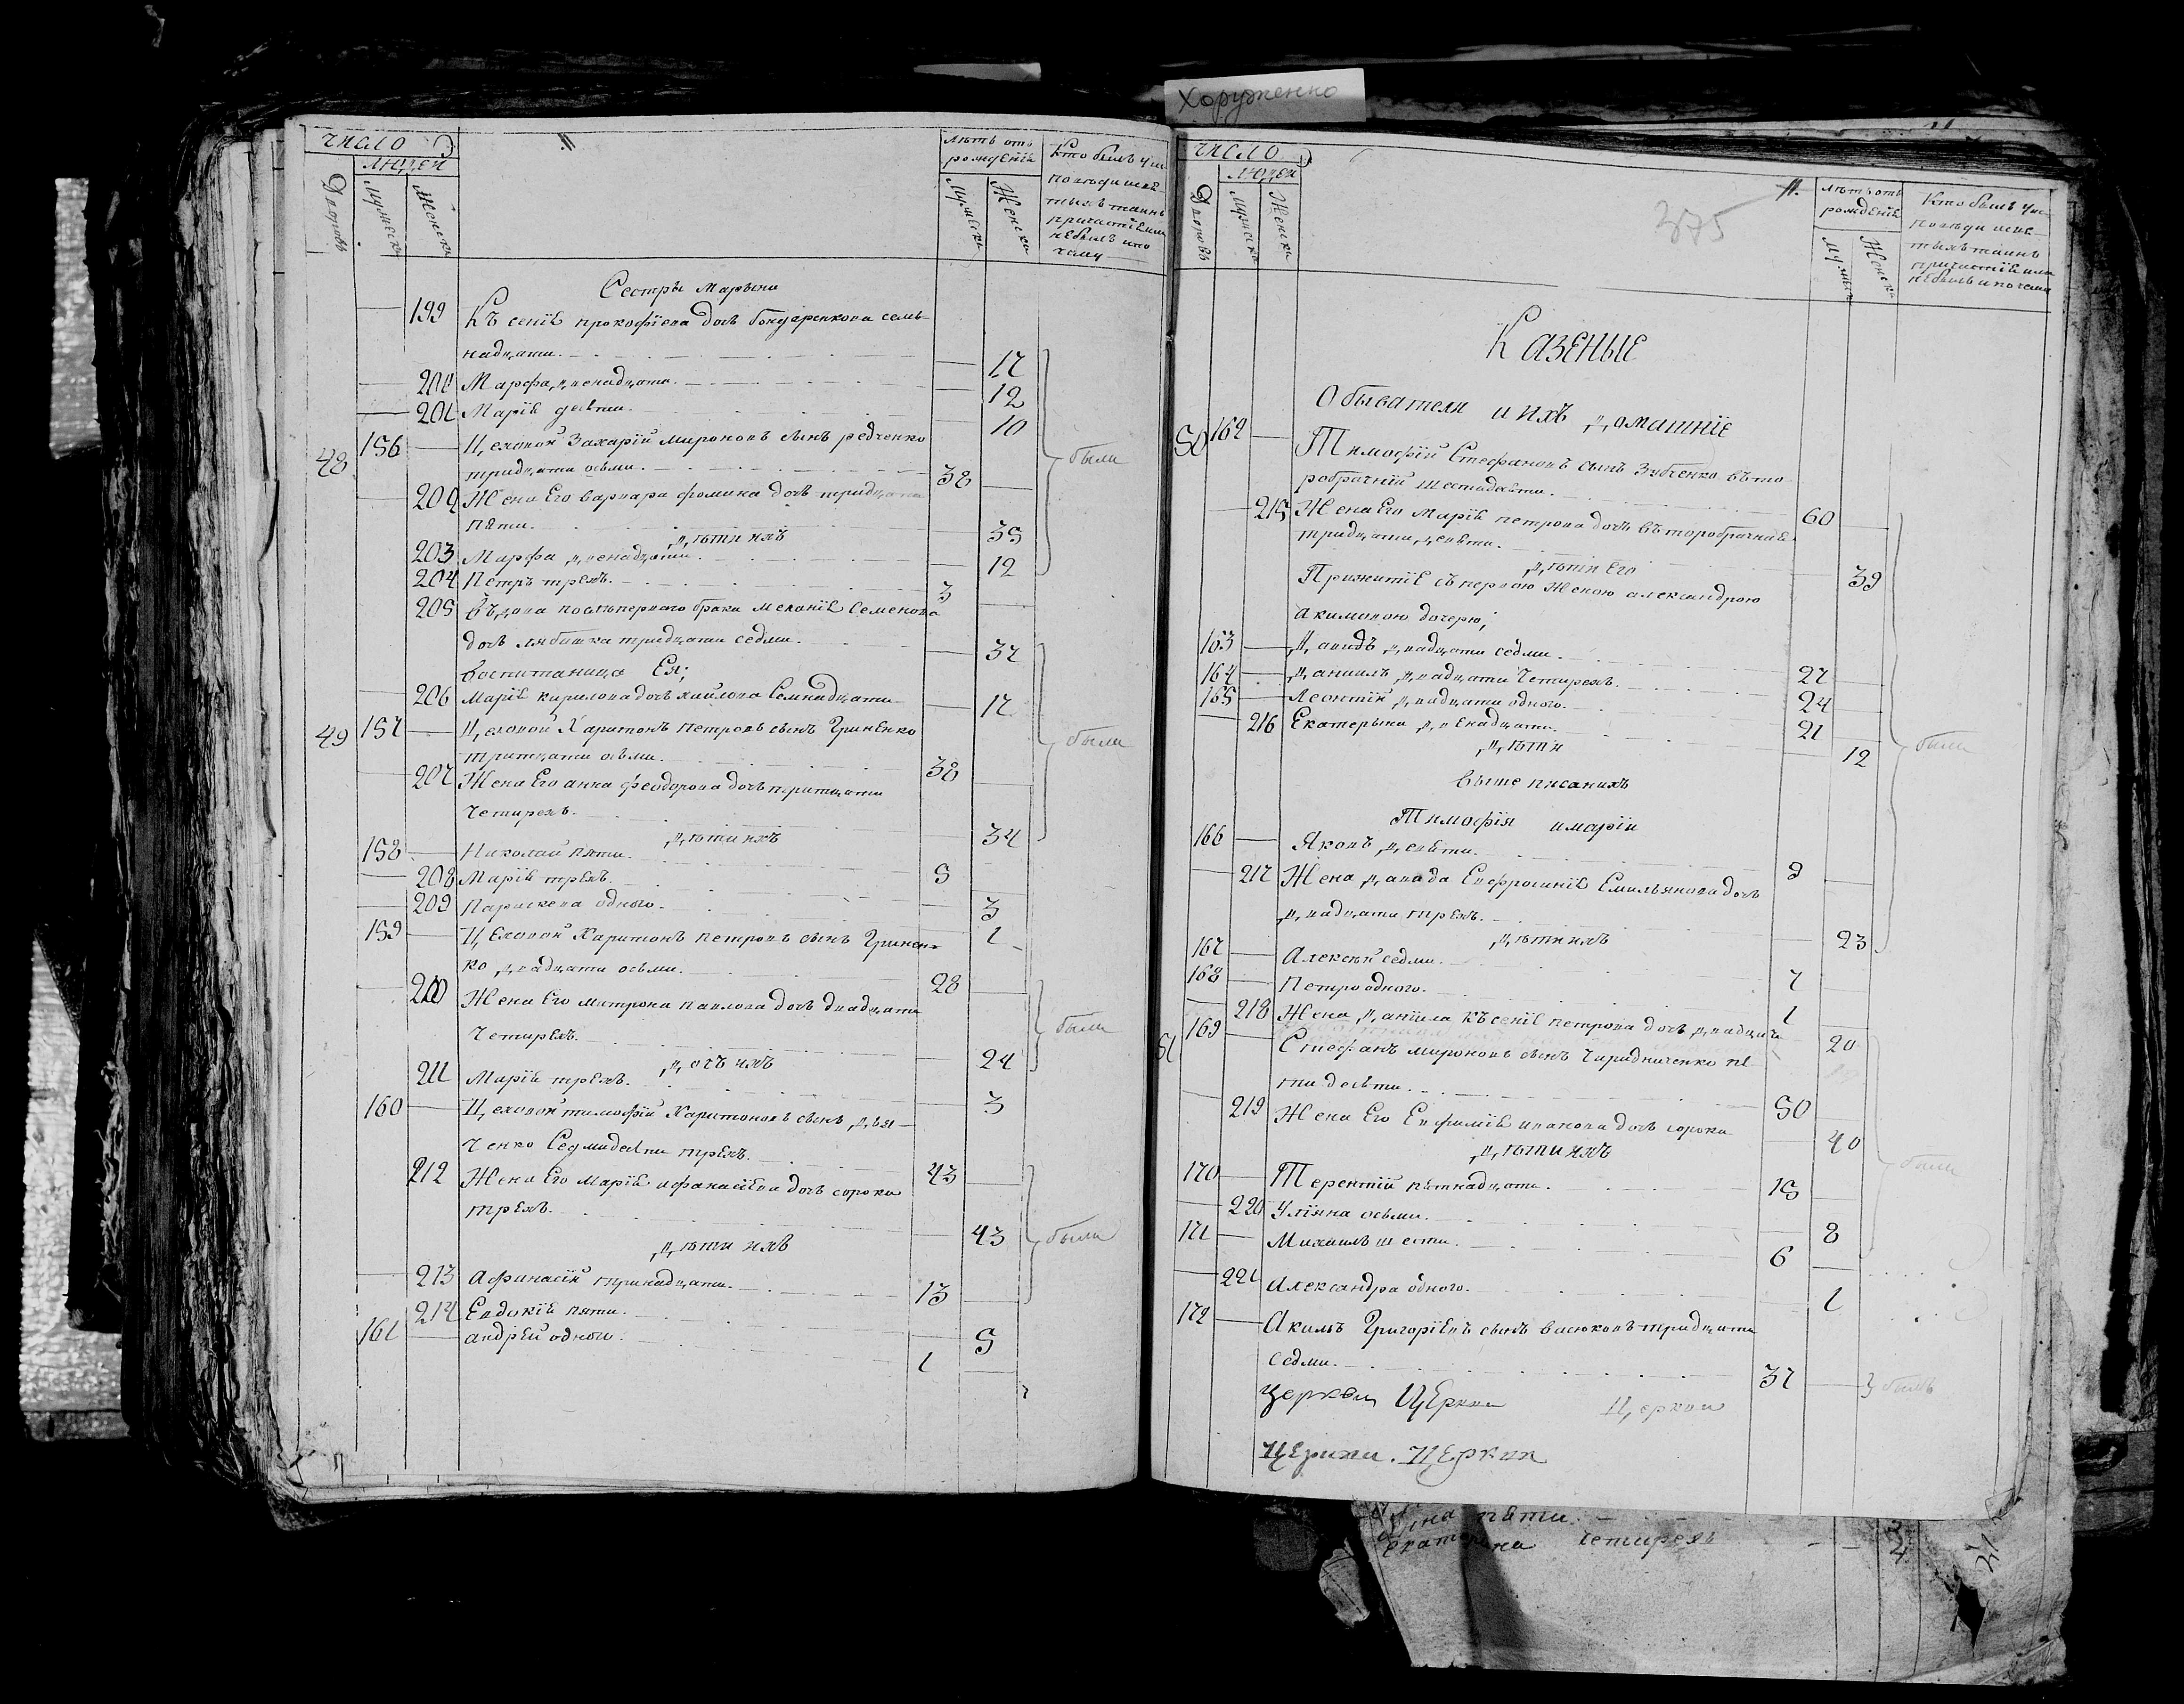 Хоруженко
число
людей
Дворовъ
Мужеска
Женска
лѣтъ отъ
рожденїя
Мужеска
Женска
Кто былъ у ис
повѣди и свя
тыхъ таинъ
причастїя или
небылъ и по
чему
Сестры Марыны
199 Късенїѣ прокофїева дочь бондаренкова семь
надцати. 17
200 Марфа двенадцати. 12
201 Марїѣ десѣти. 10
48 156 Цеховой Захарїй Мироновъ сынъ редченко
тридцати осьми. 38 были
202 Жена Его варвара фомина дочь тридцати
пѣти. 35
дѣти ихъ
203 Марфа двенадцати. 12
204 Петръ трехъ. 3
205 Въдова послѣ первого брака Меланїѣ Семенова
дочь тридцати седми. 37
воспитаница Ея;
206 Марїѣ кирилова дочь Семнадцати 17
49 157 Цеховой Харитонъ Петровъ сынъ Гриненко
тритцати осьми. 38 были
207 Жена Его анна феодорова дочь тритцати
Четирехъ. 34
дѣти ихъ
158 Николай пѣти. 5
208 Марїѣ трехъ. 3
209 Параскева одного. 1
159 Цеховой Харитонъ петровъ сынъ Гринен
ко двадцати осьми. 28
210 Жена Его матрона павлова дочь двадцати
Четирехъ. 24 были
дочь ихъ
211 Марїѣ трехъ. 3
160 Цеховой тимофїй Харитоновъ сынъ дья
ченко Седмидесѣти трехъ. 43
212 Жена Его Марїѣ афанасїева дочь сорока
трехъ. 43 были
дѣти ихъ
213 Афанасїй тринадцати. 13
214 Евдокїѣ пяти. 5
161 андрей одного. 1
число
людей
Дворовъ
Мужеска
Женска
375
лѣтъ отъ
рожденїѣ
Мужеска
Женска
Кто былъ у ис
повѣди и свя
тыхъ таинъ
причастїѣ или
небылъ и по чему
Казеные
Обыватели и ихъ домашнїе
50 162 Тимофїй Стефановъ сынъ Зубченко въто
робрачнїй шестидесѣти. 60
215 Жена Его Марїѣ петрова дочь въторобрачнаѣ
тридцати девѣти. 39
дѣти Его
Прижитїе съ первою Женою александрою
акимовою дочерю;
163 Давидъ двадцати седми. 27
164 Данїилъ двадцати Четирехъ. 24
165 Леонтїй двадцати одного. 21
216 Екатерына двенадцати. 12 были
дѣти
выше писанихъ
Тимофїя и марїи
166 Яковъ девѣти. 9
217 Жена давида Евфросинїѣ Емильянова дочь
двадцати трехъ. 23
дѣти ихъ
167 Алексѣй седми. 7
168 Петро одного. 1
218 Жена данїила Късенїѣ петрова дочь двадцати 20
51 169 Стефанъ мироновъ сынъ Чередниченко пѣ
тидесѣти. 50
219 Жена Его Евфимїѣ иванова дочь сорока 40
дѣти ихъ были
170 Терентїй пѣтнадцати. 15
220 Улїяна осьми. 8
171 Михаилъ шести. 6
221 Александра одного. 1
172 Акимъ Григорїевъ сынъ васюковъ тридцати
седми. 37 былъ
Церкви Церкви Церкви
Церкви. Церкви
пѣти.
Екатерина четирехъ 4